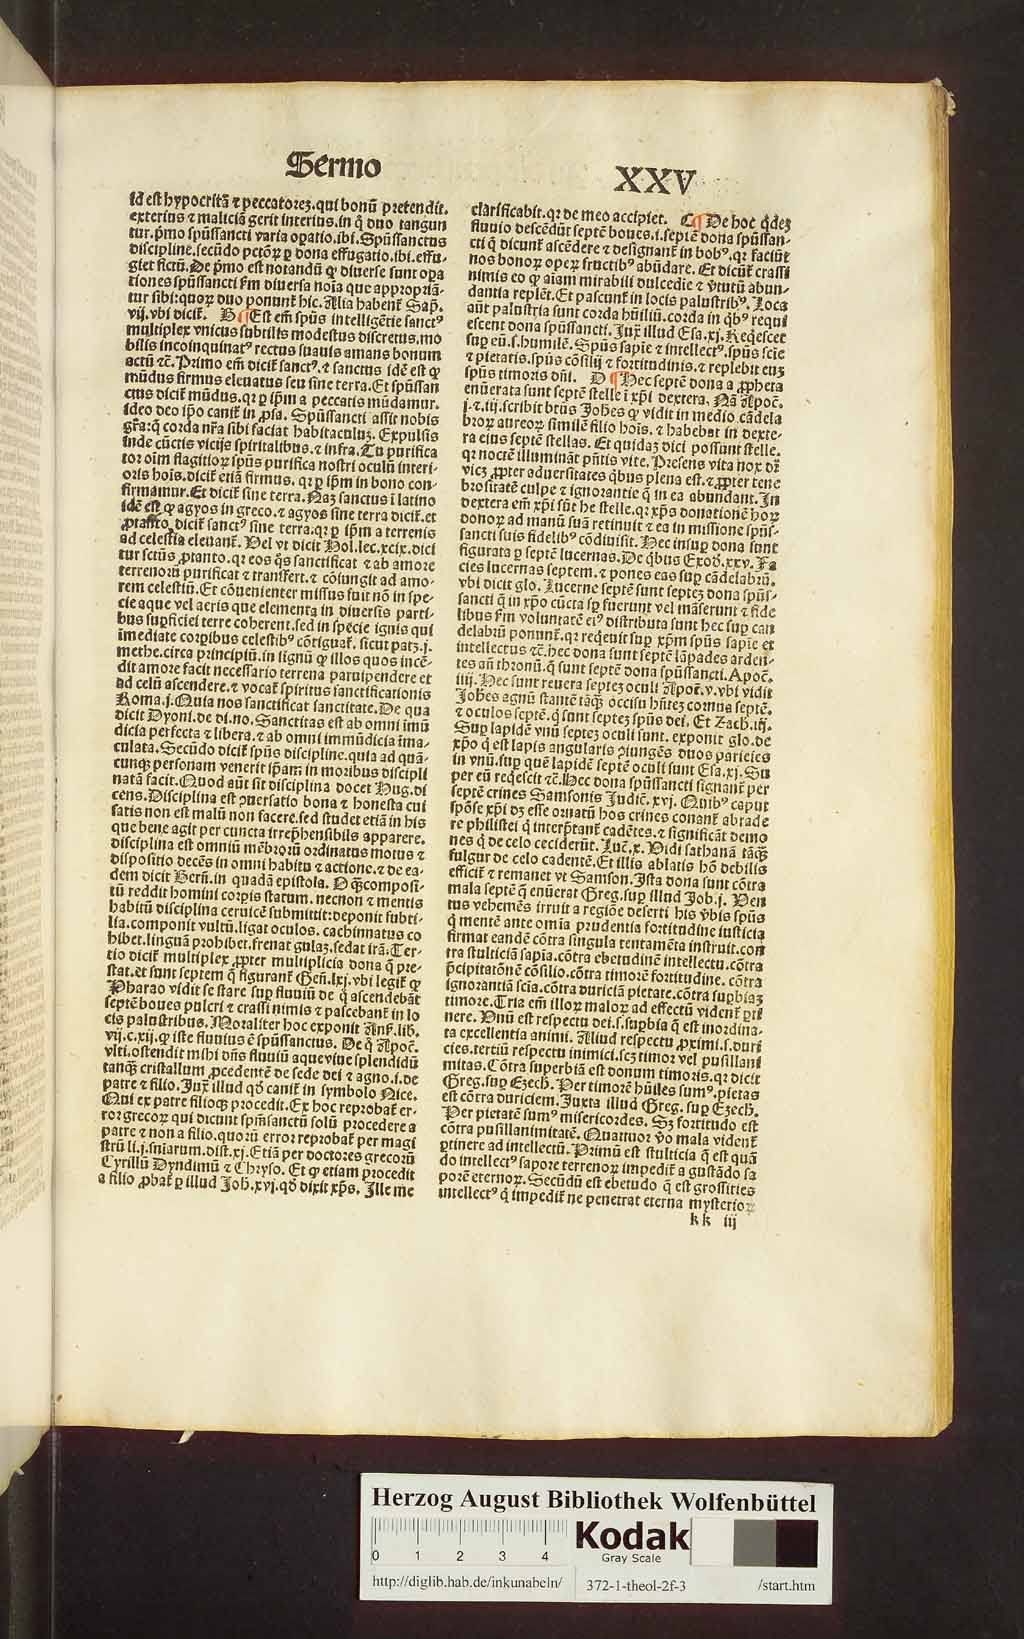 Sermo XXV
id est hypocritã ⁊ peccatorez.qui bonũ pretendit.
exterius ⁊ maliciã gerit interius.in q̃ duo tangun
tur.p̃mo spũssancti varia oꝑatio.ibi.Spũssanctus
discipline.secũdo pctõꝝ ꝑ dona effugatio.ibi.effu-
giet fictũ.De p̃mo est notandũ ꝙ diuerse sunt oꝑa
tiones spũssancti ẜm diuersa noĩa que appropriã-
tur sibi:quoꝝ duo ponunt̃ hic. Alia habent̃ Sap̃.
vij.vbi dicit̃. B ¶ Est em̃ spũs intelligẽtie sanctꝰ
multiplex vnicus subtilis modestus discretus.mo
bilis incoinquinatꝰ rectus suauis amans bonum
actũ ⁊c. Primo em̃ dicit̃ sanctꝰ. ⁊ sanctus idẽ est ꝙ
mũdus firmus eleuatus seu sine terra.Et spũssan
ctus dicit̃ mũdus.qꝛ ꝑ ip̃m a peccatis mũdamur.
ideo deo ip̃o canit̃ in ꝓsa. Spũssancti assit nobis
gr̃a:q̃ corda nr̃a sibi faciat habitaculuz. Expulsis
inde cũctis vicijs spiritalibus.⁊ infra.Tu purifica
tor oĩm flagitioꝝ spũs purifica nostri oculũ interi-
oris hoĩs.dicit̃ etiã firmus. qꝛ ꝑ ip̃m in bono con-
firmamur.Et dicit̃ sine terra. Naz sanctus ĩ latino
idẽ est ꝙ agyos in greco.⁊ agyos sine terra dicit̃.et
ꝓtanto dicit̃ sanctꝰ sine terra.qꝛ ꝑ ip̃m a terrenis
ad celestia eleuant̃. Vel vt dicit Hol.lec.xcix.dici
tur sctũs ꝓtanto.qꝛ eos q̃s sanctificat ⁊ ab amore
terrenorũ purificat ⁊ transfert.⁊ cõiungit ad amo-
rem celestiũ.Et cõuenienter missus fuit nõ in spe-
cie aque vel aeris que elementa in diuersis parti-
bus suꝑficiei terre coherent.sed in specie ignis qui
ĩmediate corꝑibus celestibꝰ cõtiguat̃. sicut patz.j.
methe.circa principiũ.in signũ ꝙ illos quos incẽ-
dit amore facit necessario terrena paruipendere et
ad celũ ascendere.⁊ vocat̃ spiritus sanctificationis
Roma.j.Quia nos sanctificat sanctitate. De qua
dicit Dyoni.de di.no. Sanctitas est ab omni imũ
dicia perfecta ⁊ libera.⁊ ab omni immũdicia ĩma-
culata.Secũdo dicit̃ spũs discipline.quia ad quã-
cunqꝫ personam venerit ip̃am in moribus discipli
natã facit.Quod aũt sit disciplina docet Hug.di
cens.Disciplina est ꝯuersatio bona ⁊ honesta cui
satis non est malũ non facere.sed studet etiã in his
que bene agit per cuncta irrep̃hensibilis apparere.
Disciplina est omniũ mẽbrorũ ordinatus motus ⁊
dispositio decẽs in omni habitu ⁊ actione.⁊ de ea-
dem dicit Bern̄.in quadã epistola. O q̃ꝫcomposi-
tũ reddit homini corꝑis statum. necnon ⁊ mentis
habitũ disciplina ceruicẽ submittit:deponit subti-
lia.componit vultũ.ligat oculos. cachinnatus co
hibet.linguã prohibet.frenat gulaz.sedat irã.Ter-
tio dicit̃ multiplex ꝓpter multiplicia dona q̃ pre-
stat.et sunt septem q̃ figurant̃ Geñ.lxj.vbi legit̃ ꝙ
Pharao vidit se stare suꝑ fluuiũ de q̃ ascendebãt
septẽ boues pulcri ⁊ crassi nimis ⁊ pascebant̃ in lo
cis palustribus. Moraliter hoc exponit Anf.lib.
vij.c.xij.ꝙ iste fluuius ẽ spũssanctus. De q̃ Apoc̃.
vlti.ostendit mihi dñs fluuiũ aque viue splendidũ
tanqꝫ cristallum ꝓcedentẽ de sede dei ⁊ agno.i.de
patre ⁊ filio.Iux̃ illud qđ canit̃ in symbolo Nice.
Qui ex patre filioqꝫ procedit.Ex hoc reprobat̃ er-
ror grecoꝝ qui dicunt spm̃sanctũ solũ procedere a
patre ⁊ non a filio.quorũ error reprobat̃ per magi
strũ li.j.sñiarum.dist.xj.Etiã per doctores grecorũ
Cyrillũ Dyndimũ ⁊ Chryso. Et ꝙ etiam procedit
a filio ꝓbat̃ ꝑ illud Joh.xvj.qđ dixit xp̃s. Ille me
clarificabit.qꝛ de meo accipiet. C ¶ De hoc q̃dez
fluuio descẽdũt septẽ boues.i.septẽ dona spũssan-
cti q̃ dicunt̃ ascẽdere ⁊ designant̃ in bobꝰ.qꝛ faciũt
nos bonoꝝ opeꝝ fructibꝰ abũdare. Et dicũt̃ crassi
nimis eo ꝙ aĩam mirabili dulcedie ⁊ ṽtutũ abun-
dantia replẽt.Et pascunt̃ in locis palustribꝰ. Loca
aũt palustria sunt corda hũiliũ.corda in q̃bꝰ requi
escent dona spũssancti. Iux̃ illud Esa.xj. Reqescet
suꝑ eũ.s.humilẽ. Spũs sapĩe ⁊ intellectꝰ.spũs scĩe
⁊ pietatis.spũs cõsilij ⁊ fortitudinis.⁊ replebit euz
spũs timoris dñi. D ¶ Hec septẽ dona a ꝓpheta
enũerata sunt septẽ stelle ĩ xp̃i dextera. Nã Apoc̃.
j.⁊.iij.scribit btũs Johẽs ꝙ vidit in medio cãdela
broꝝ aureoꝝ similẽ filio hoĩs. ⁊ habebat in dexte-
ra eius septẽ stellas. Et quidaz dici possunt stelle.
qꝛ noctẽ illuminãt pñtis vite. Presens vita nox dr̃
vicz ꝓpter aduersitates q̃bus plena est.⁊ ꝓpter tene
brositatẽ culpe ⁊ ignorantie q̃ in ea abundant. In
dextera em̃ xp̃i sũt he stelle.qꝛ xp̃s donationẽ hoꝝ
donoꝝ ad manũ suã retinuit ⁊ ea in missione spũs-
sancti suis fidelibꝰ cõdiuisit. Hec insuꝑ dona sunt
figurata ꝑ septẽ lucernas. De q̃bus Exođ.xxv. Fa
cies lucernas septem.⁊ pones eas suꝑ cãdelabrũ.
vbi dicit glo. Lucerne septẽ sunt septez dona spũs-
sancti q̃ in xp̃o cũcta sp̃ fuerunt vel mãserunt ⁊ fide
libus ẜm voluntatẽ eiꝰ distributa sunt hec suꝑ can
delabrũ ponunt̃.qꝛ reqeuit suꝑ xp̃m spũs sapĩe et
intellectus ⁊c.hec dona sunt septẽ lãpades arden-
tes añ thronũ.q̃ sunt septẽ dona spũssancti. Apoc̃.
iiij. Hec sunt reuera septez oculi Apoc̃.v.vbi vidit
Johẽs agnũ stantẽ tãqꝫ occisũ hñtez cornua septẽ.
⁊ oculos septẽ.q̃ sunt septez spũs dei. Et Zach.iij.
Suꝑ lapidẽ vnũ septez oculi sunt. exponit glo.de
xp̃o q̃ est lapis angularis ꝯiungẽs duos parietes
in vnũ.suꝑ quẽ lapidẽ septẽ oculi sunt Esa.xj. Su
per eũ reqescit ⁊c.Hec dona spũssancti signant̃ per
septẽ crines Samsonis Judic̃.xvj. Quibꝰ caput
spõse xp̃i dz esse ornatũ hos crines conant̃ abrade
re philistei q̃ interp̃tant̃ cadẽtes.⁊ significãt demo
nes q̃ de celo ceciderũt. Luc̃.x. Vidi sathanã tãqꝫ
fulgur de celo cadentẽ.Et illis ablatis hõ debilis
efficit̃ ⁊ remanet vt Samson. Ista dona sunt cõtra
mala septẽ q̃ enũerat Greg.suꝑ illud Job.j. Ven
tus vehemẽs irruit a regiõe deserti his ṽbis spũs
q̃ mentẽ ante om̃ia prudentia fortitudine iusticia
firmat eandẽ cõtra singula tentamẽta instruit.con
tra stulticiã sapĩa.cõtra ebetudinẽ intellectu.cõtra
p̃cipitatõnẽ cõsilio.cõtra timorẽ fortitudine. cõtra
ignorantiã scĩa.cõtra duriciã pietate.cõtra suꝑbiaz
timore.Tria em̃ illoꝝ maloꝝ ad effectũ vident̃ ꝑti
nere. Vnũ est respectu dei.s.suꝑbia q̃ est inordina-
ta excellentia animi. Aliud respectu ꝓximi.s.duri
cies.tertiũ respectu inimici.scz timor vel pusillani
mitas. Cõtra superbiã est donum timoris.qꝛ dicit
Greg.suꝑ Ezech. Per timorẽ hũiles sumꝰ.pietas
est cõtra duriciem. Iuxta illud Greg. suꝑ Ezech.
Per pietatẽ sumꝰ misericordes. Sz fortitudo est
cõtra pusillanimitatẽ. Quattuor ṽo mala vident̃
ꝑtinere ad intellectũ. Primũ est stulticia q̃ est quã
do intellectꝰ sapore terrenoꝝ impedit̃ a gustãdo sa
porẽ eternoꝝ. Secũdũ est ebetudo q̃ est grossities
intellectꝰ q̃ impedit̃ ne penetrat eterna mysterioꝝ
kk iij
Herzog August Bibliothek Wolfenbüttel
0 1 2 3 4
Kodak
Gray Scale
http://diglib.hab.de/inkunabeln/ 372-1-theol-2f-3 /start.htm